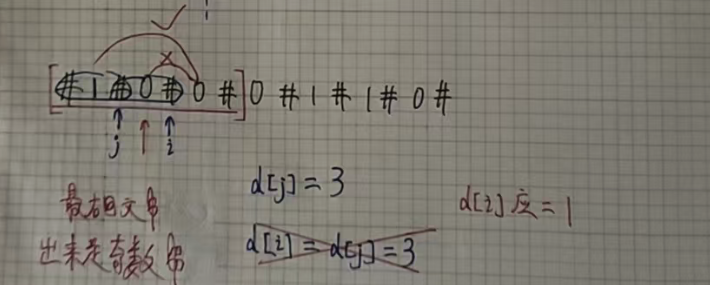 [# 1 # 0 # 0 #] 0 # 1 # 1 # 0 #
j i
d[j] = 3
d[i] 应 = 1
最右回文串
出来是奇数串
d[i] = d[j] = 3